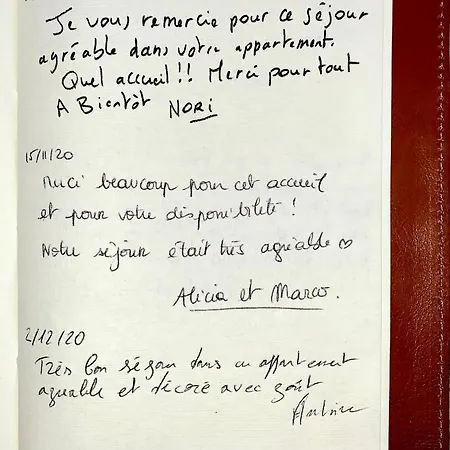 Je vous remercie pour ce séjour
agréable dans votre appartement.
Quel accueil !! Merci pour tout
A Bientôt NORI
15/11/20
Merci beaucoup pour cet accueil
et pour votre disponibilité !
Notre séjour était très agréable ♡
Alicia et Marco.
2/12/20
Très bon séjour dans un appartement
agréable et décoré avec goût
Antoine